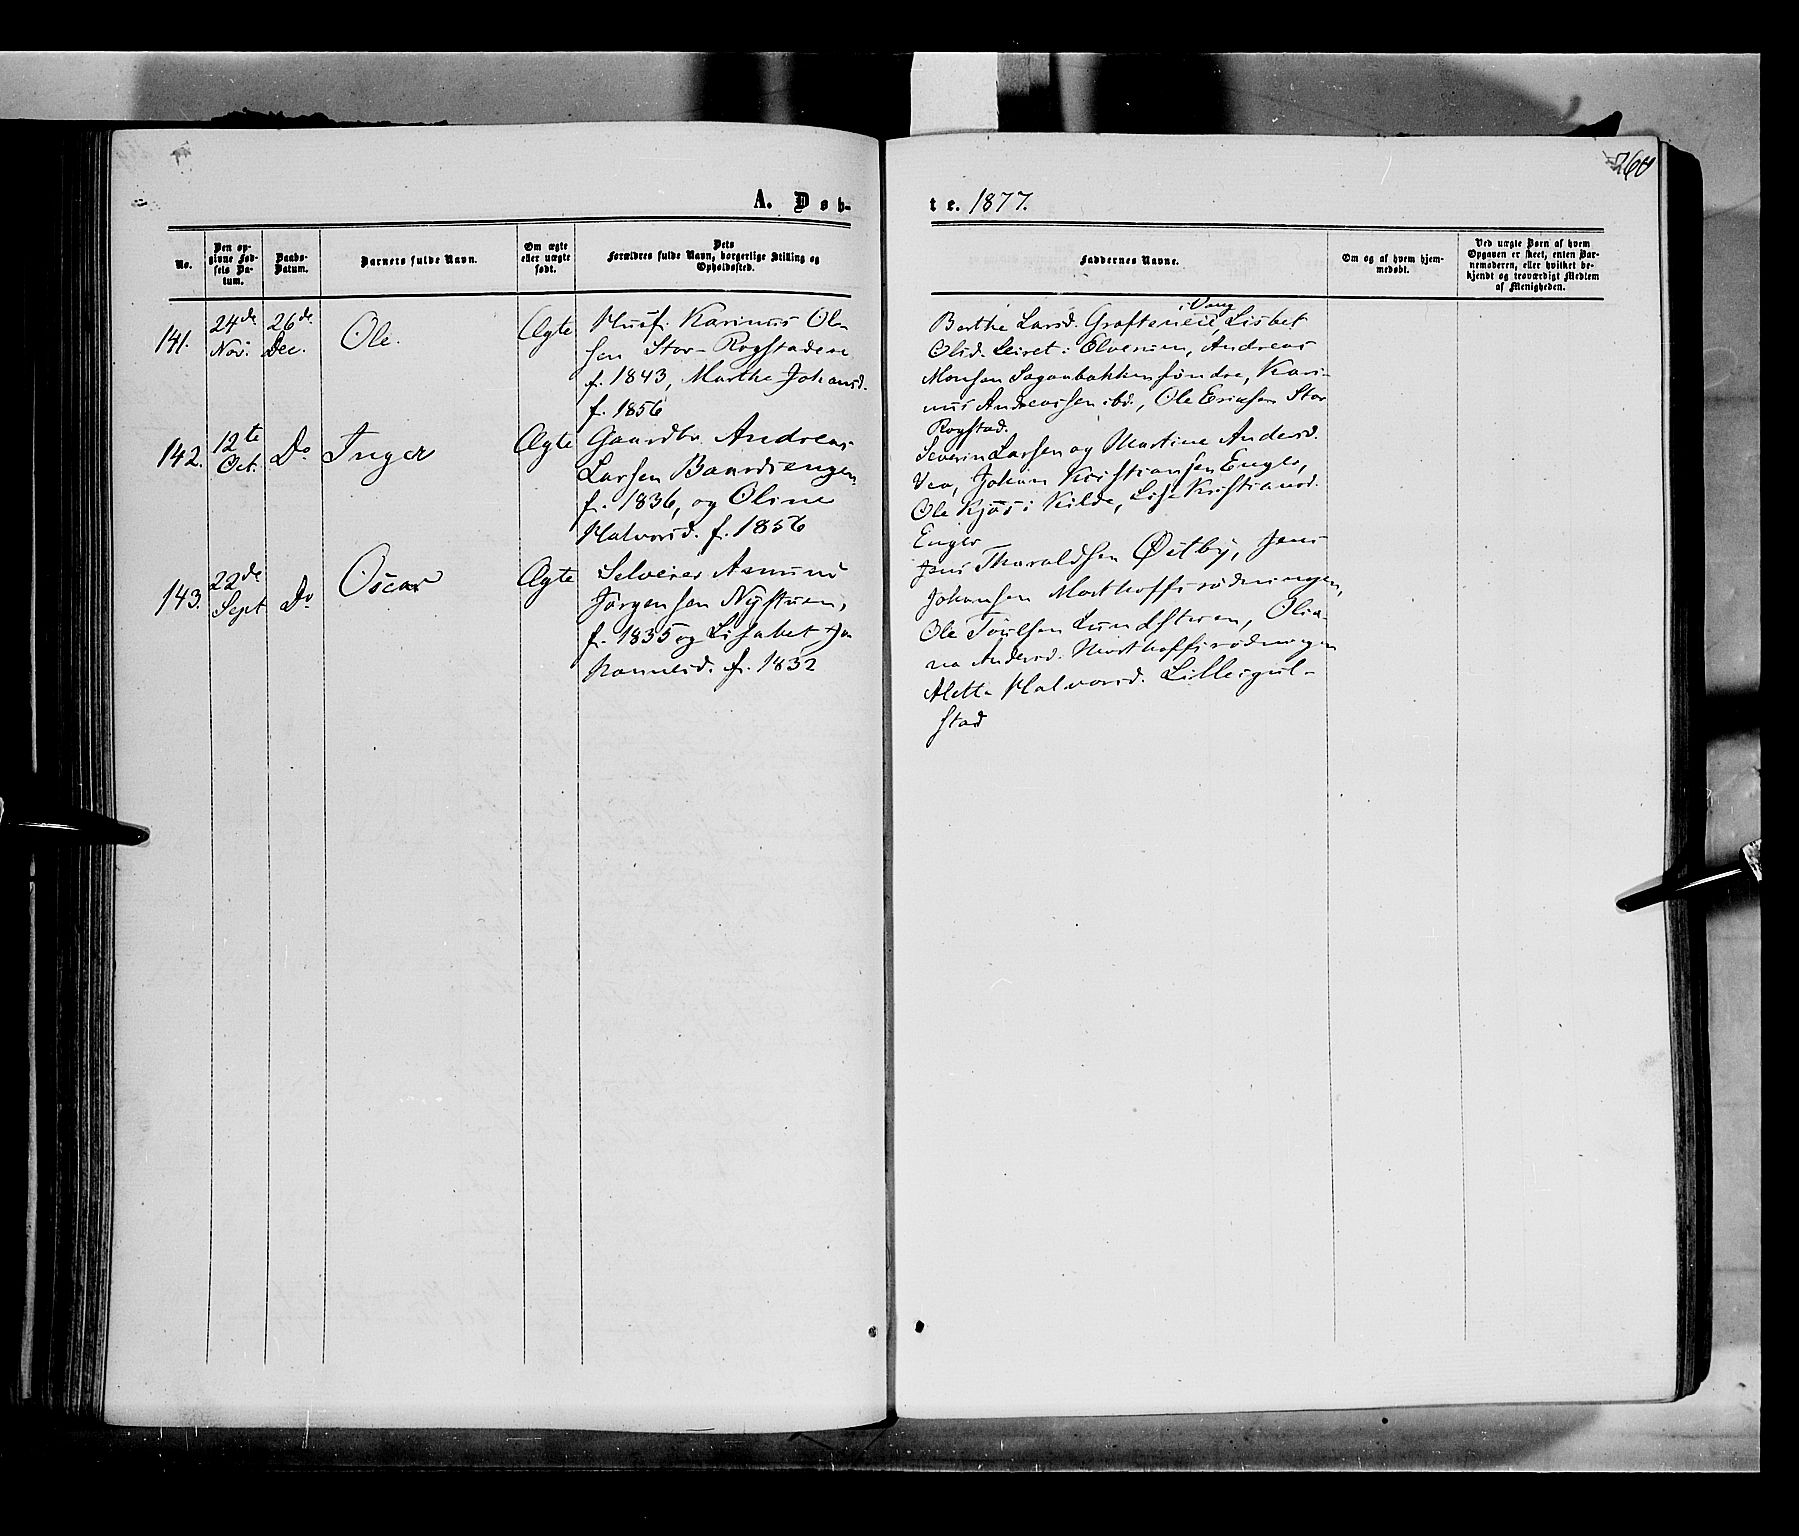 260
A. Døb-
te. 1877.
No.
Den op-
givne Fød-
sels Da-
tum.
Daabs-
Datum.
Barnets fulde Navn.
Om ægte
eller uægte
født.
Dets
Forældres fulde Navn, borgerlige Stilling og
Opholdssted.
Faddernes Navne.
Om og af hvem hjem-
medøbt.
Ved uægte Børn af hvem
Opgaven er skeet, enten Bar-
nemoderen, eller hvilket be-
kjendt og troværdigt Medlem
af Menigheden.
141.
24de
Nov.
26de
Dec.
Ole.
Ægte
Husf. Karinus Ol-
sen Stor-Rogstadeie
f. 1843, Marthe Johansd.
f. 1856
i Vang
Berthe Larsd. Lisbet
Olsd. Leiret i Elverum, Andreas
Monsen søndre, Kari-
nus Andreassen ibd., Ole Eriksen Stor
Rogstad.
142.
12te
Oct.
Do
Inger
Ægte
Gaardbr. Andreas
Larsen Baardsengen
f. 1836, og Oline
Halvorsd. f. 1856
Severin Larsen og Martine Andersd.
Vea, Johan Kristiansen Enger,
Ole Kjøs i Kilde, Lise Kristiansd.
Enger
143.
22de
Sept
Do
Oscar
Ægte
Selveier Asmund
Jørgensen Nystuen,
f. 1835 og Lisabet Jo-
hannesd. f. 1832
Jens Tharaldsen Østby, Jens
Johansen Morthoffsrødningen,
Ole Lundsteen, Olia-
na Andersd. Morthoffsrødningen
Alette Halvorsd. Lillesgul-
stad